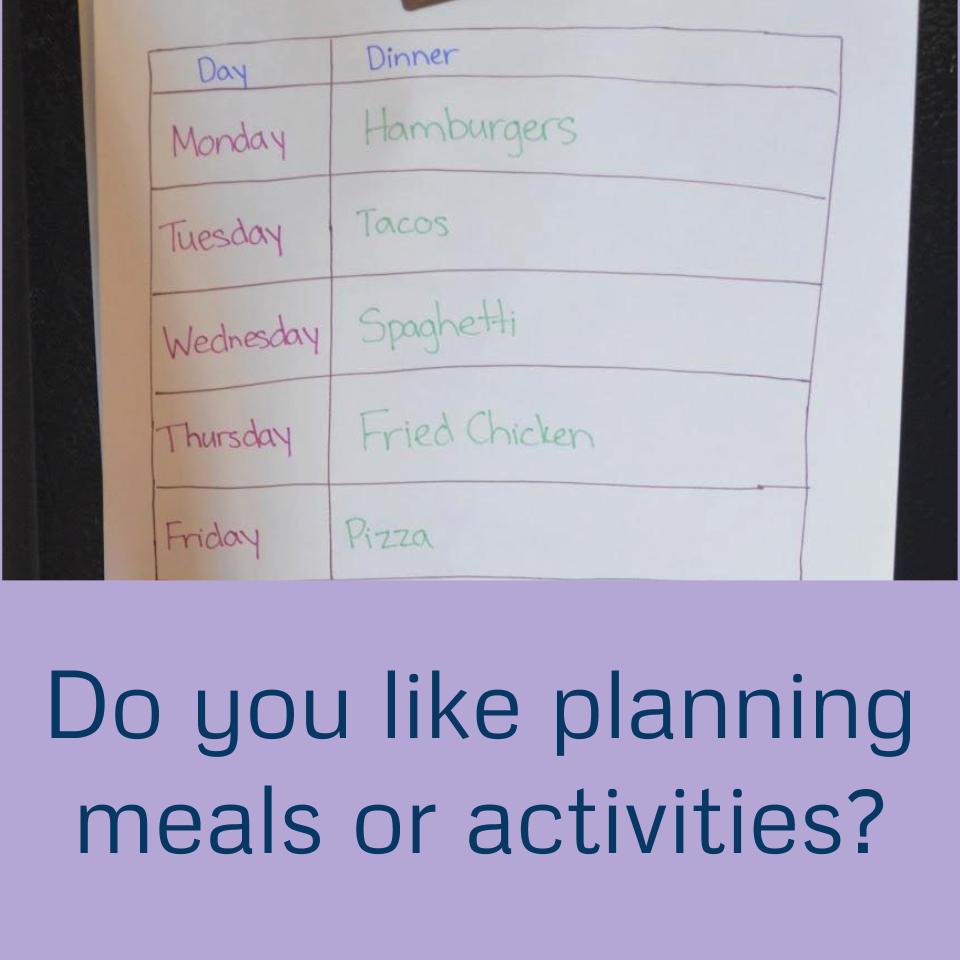 Day Dinner
Monday Hamburgers
Tuesday Tacos
Wednesday Spaghetti
Thursday Fried Chicken
Friday Pizza
Do you like planning
meals or activities?